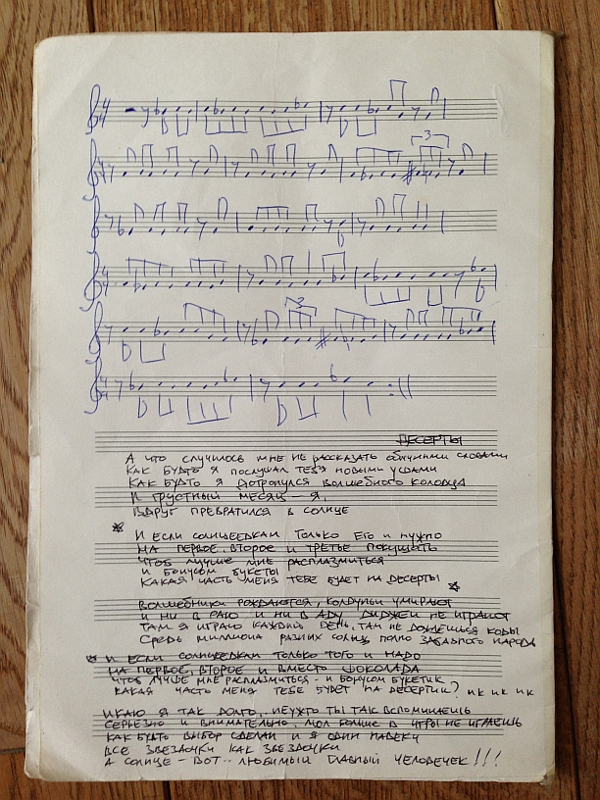 4/4
3
4/4
3
ДЕСЕРТЫ
А ЧТО СЛУЧИЛОСЬ МНЕ НЕ РАССКАЗАТЬ ОБЫЧНЫМИ СЛОВАМИ
КАК БУДТО Я ПОСЛУШАЛ ТЕБЯ НОВЫМИ УШАМИ
КАК БУДТО Я ДОТРОНУЛСЯ ВОЛШЕБНОГО КОЛОДЦА
И ГРУСТНЫЙ МЕСЯЦ – Я,
ВДРУГ ПРЕВРАТИЛСЯ В СОЛНЦЕ
* И ЕСЛИ СОЛНЦЕЕДКАМ ТОЛЬКО ЕГО И НУЖНО
НА ПЕРВОЕ, ВТОРОЕ И ТРЕТЬЕ ПОКУШАТЬ
ЧТОБ ЛУЧШЕ МНЕ РАСПЛАЗМИТЬСЯ
И БОНУСОМ БУКЕТЫ
КАКАЯ ЧАСТЬ МЕНЯ ТЕБЕ БУДЕТ НА ДЕСЕРТЫ *
ВОЛШЕБНИКИ РОЖДАЮТСЯ, КОЛДУНЬИ УМИРАЮТ
И НИ В РАЮ И НИ В АДУ ДИДЖЕИ НЕ ИГРАЮТ
ТАМ Я ИГРАЮ КАЖДЫЙ ДЕНЬ, ТАМ НЕ ДОЖДЁШЬСЯ КОДЫ
СРЕДЬ МИЛЛИОНА РАЗНЫХ СОЛНЦ, ПОЛНО ЗАБАВНОГО НАРОДА
* И ЕСЛИ СОЛНЦЕЕДКАМ ТОЛЬКО ТОГО И НАДО
НА ПЕРВОЕ, ВТОРОЕ И ВМЕСТО ШОКОЛАДА
ЧТОБ ЛУЧШЕ МНЕ РАСПЛАЗМИТЬСЯ - И БОНУСОМ БУКЕТИК
КАКАЯ ЧАСТЬ МЕНЯ ТЕБЕ БУДЕТ НА ДЕСЕРТИК? ИК ИК ИК
ИКАЮ Я ТАК ДОЛГО, НЕУЖТО ТЫ ТАК ВСПОМИНАЕШЬ
СЕРЬЁЗНО И ВНИМАТЕЛЬНО, МОЛ БОЛЬШЕ В ИГРЫ НЕ ИГРАЕШЬ
КАК БУДТО ВЫБОР СДЕЛАН И Я ОДИН НАВЕКУ
ВСЕ ЗВЕЗДОЧКИ КАК ЗВЕЗДОЧКИ
А СОЛНЦЕ – ВОТ.. ЛЮБИМЫЙ ГЛАВНЫЙ ЧЕЛОВЕЧЕК!!!